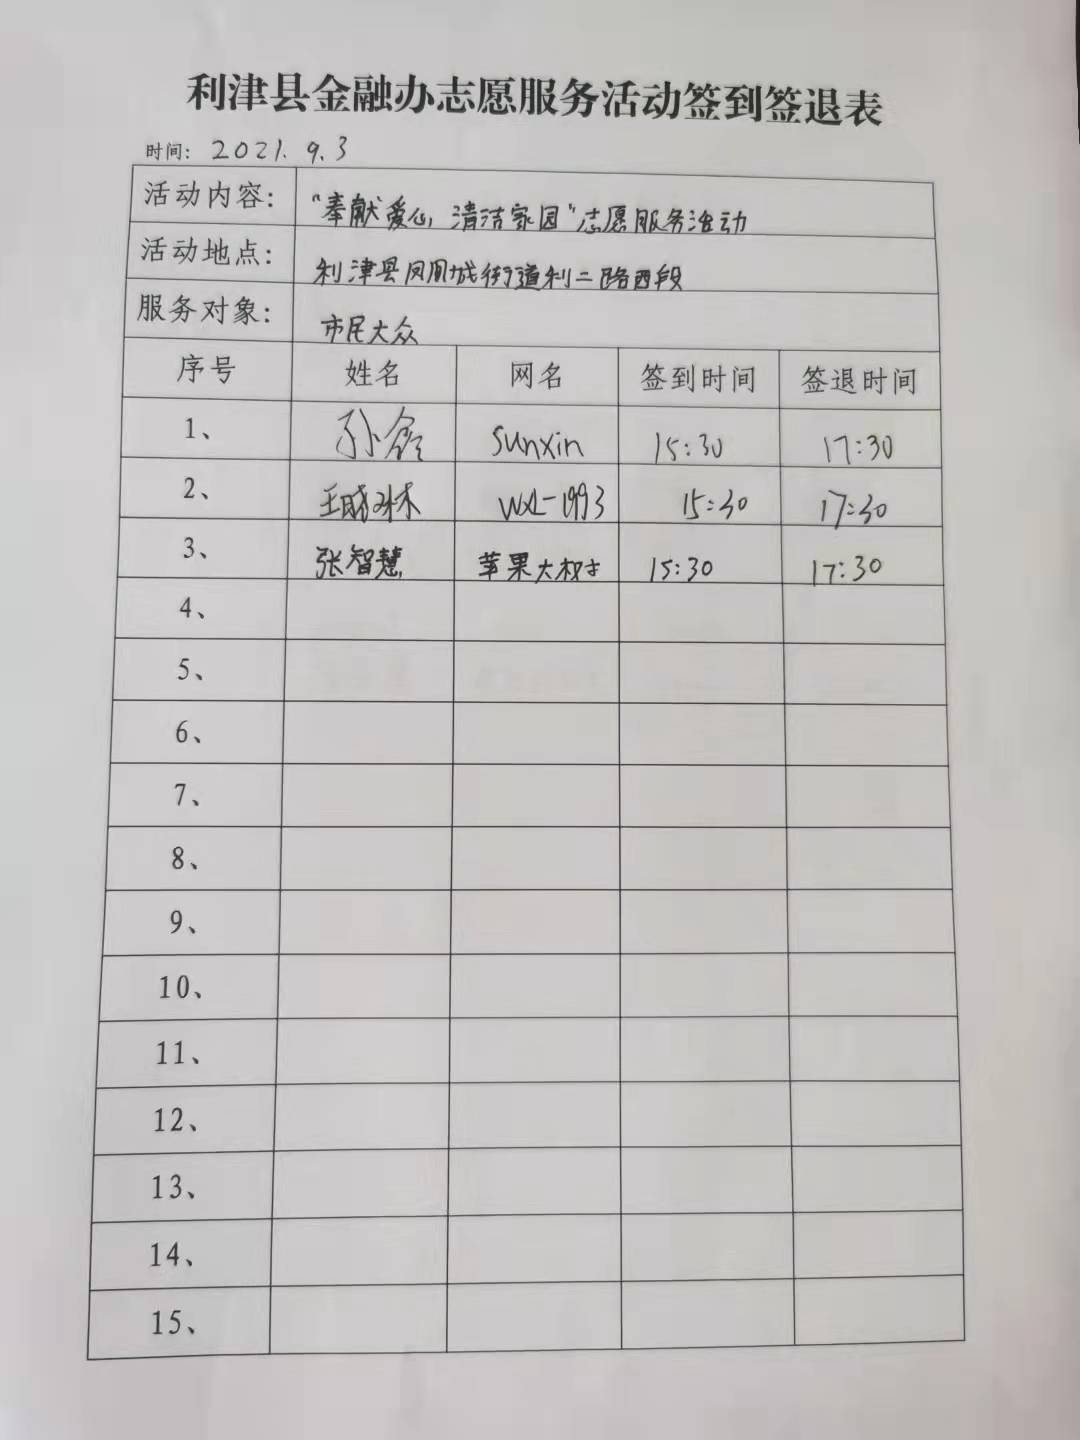 利津县金融办志愿服务活动签到签退表
时间: 2021. 9. 3
活动内容: “奉献爱心，清洁家园”志愿服务活动
活动地点: 利津县凤凰城街道利二路西段
服务对象: 市民大众
序号 姓名 网名 签到时间 签退时间
1、 孙鑫 sunxin 15:30 17:30
2、 王 wxl-1993 15:30 17:30
3、 张智慧 苹果大叔 15:30 17:30
4、
5、
6、
7、
8、
9、
10、
11、
12、
13、
14、
15、